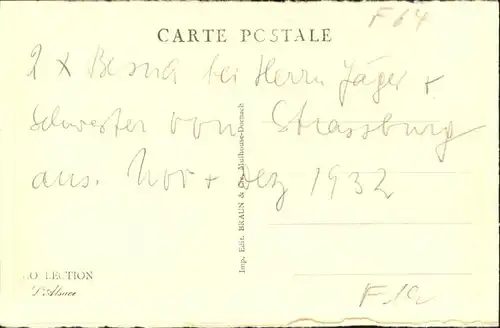 F 64
CARTE POSTALE
2 x Besuch bei Herrn Jäger +
Schwester von Strassburg
aus. Nov + Dez 1932
Imp. Edit. BRAUN & Cie, Mulhouse-Dornach
COLLECTION
L'Alsace
F 12